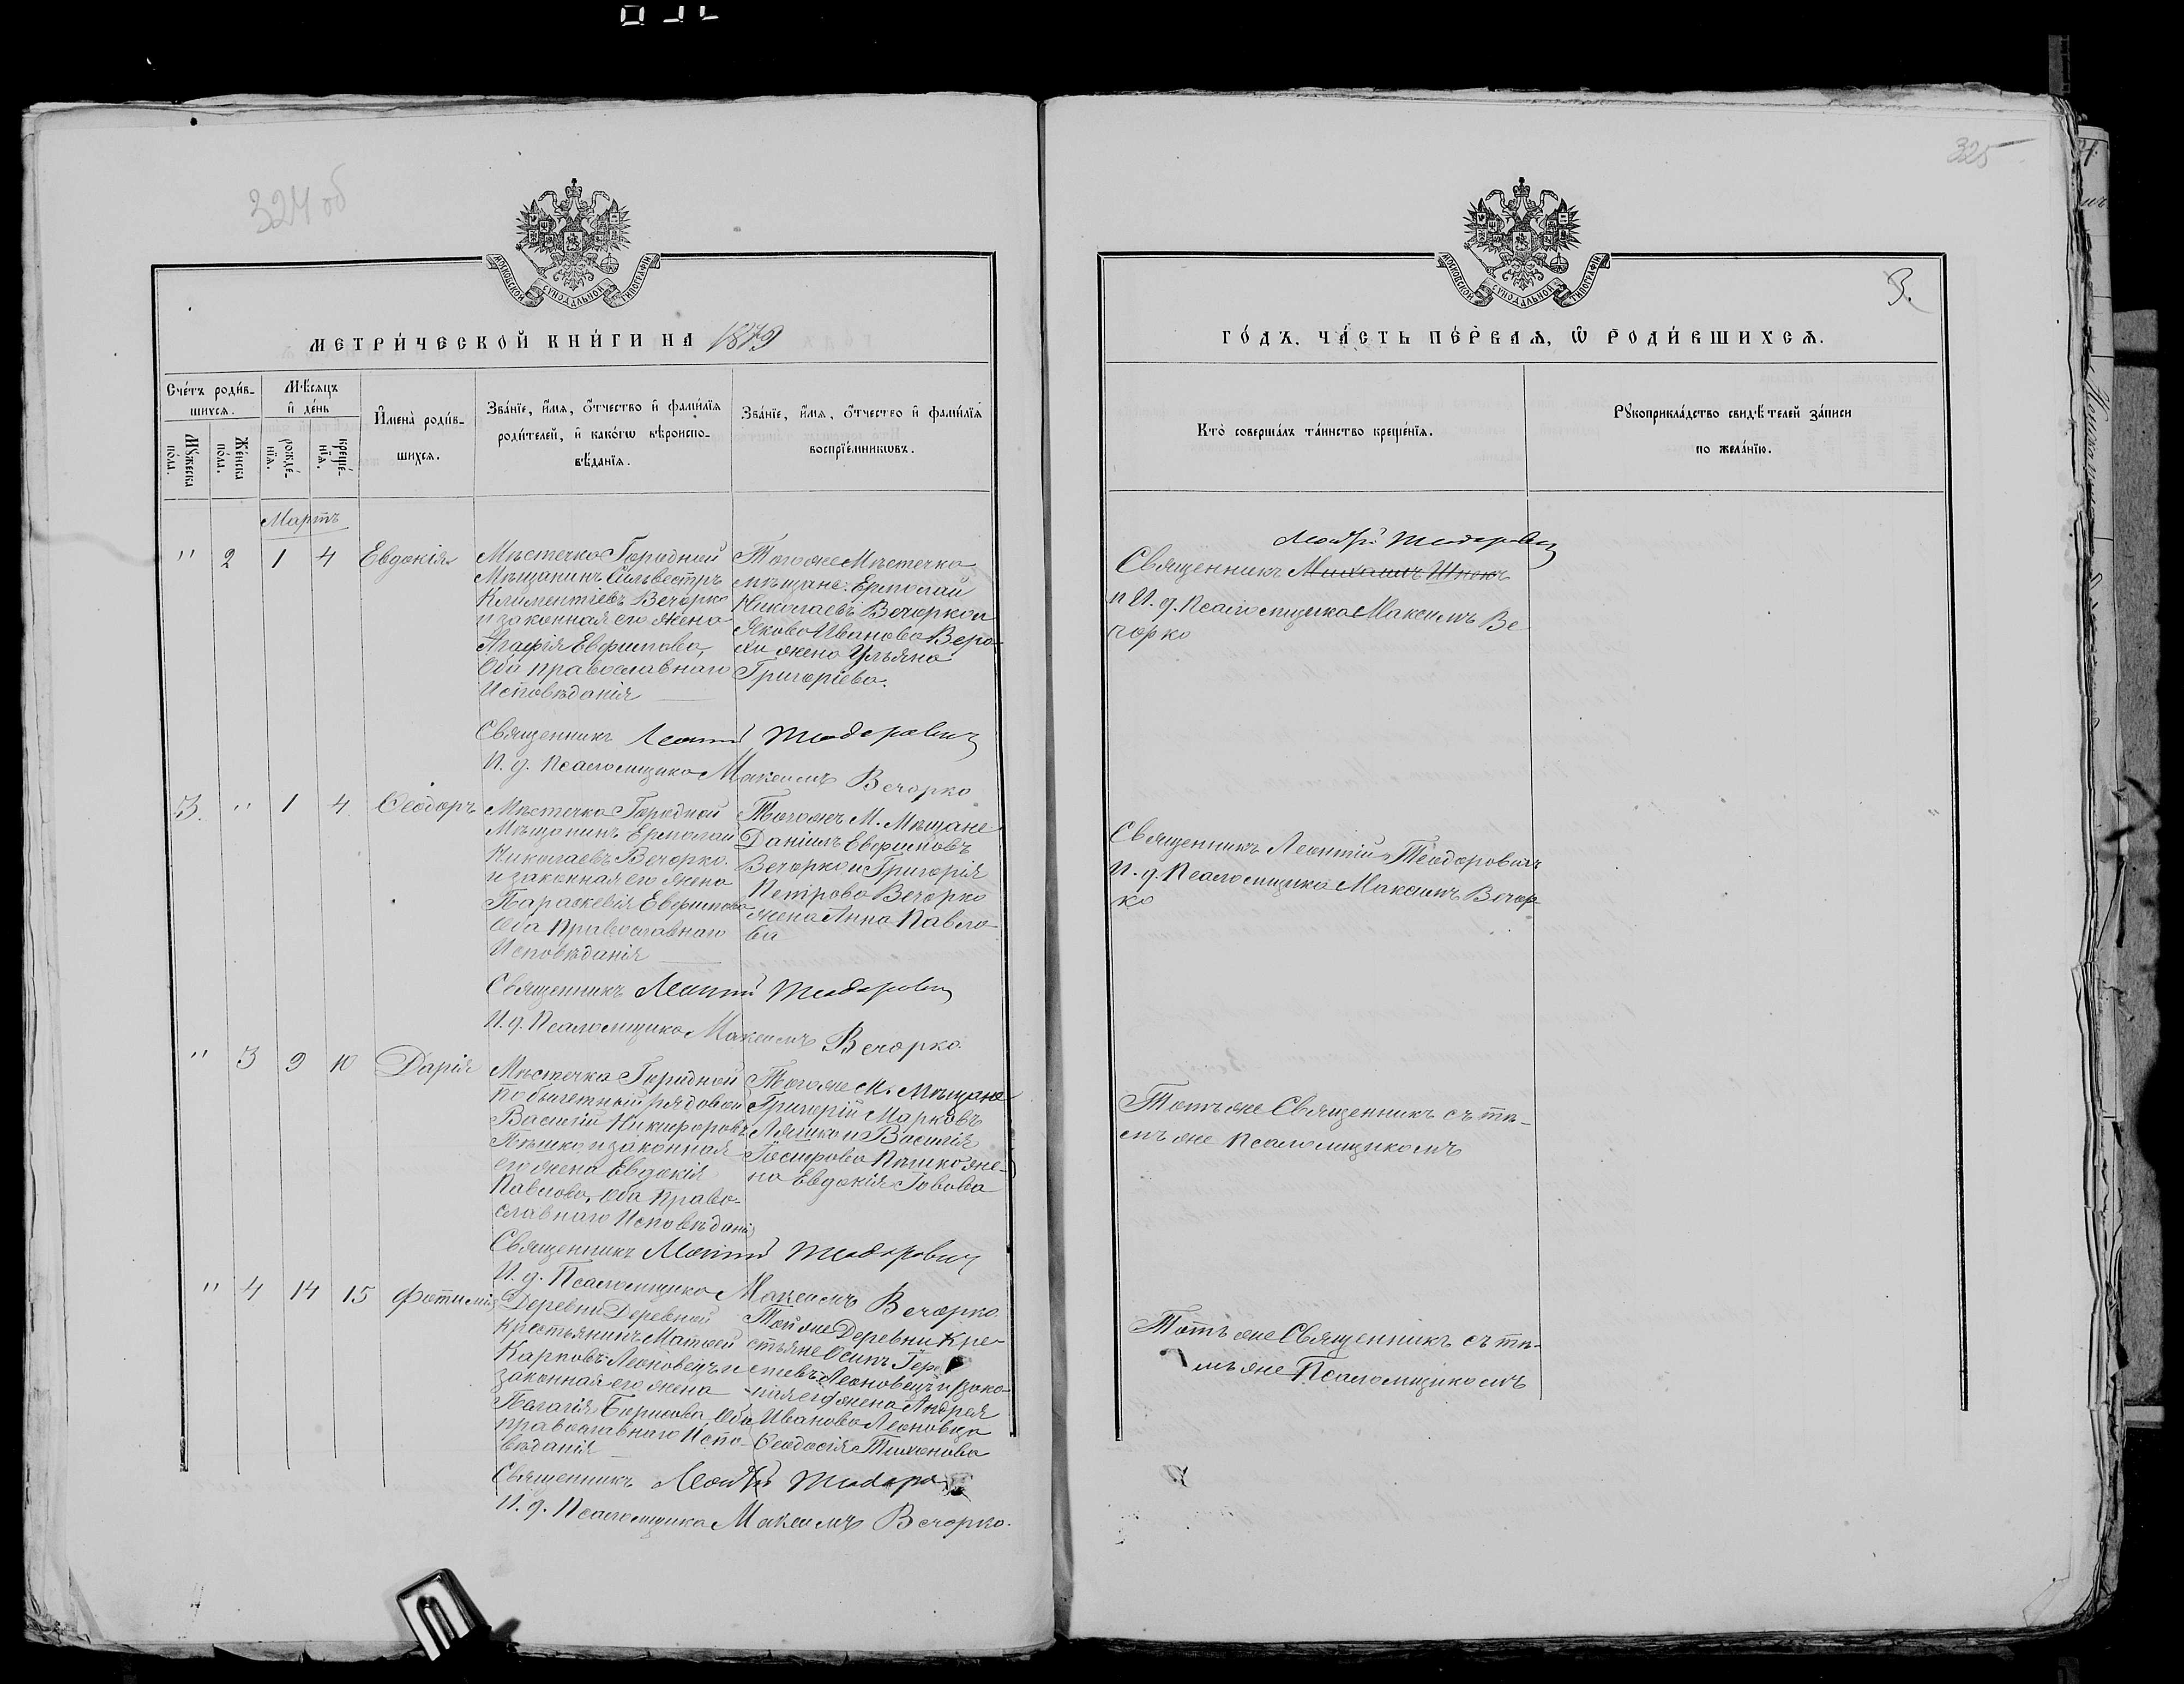 324 об
МОСКОВСКОЙ СѴНОДАЛЬНОЙ ТИПОГРАФІИ
МЕТРИ́ЧЕСКОЙ КНИ́ГИ НА 1879
Сче́тъ роди́в-
шихсѧ.
Мѣ́сяцъ
и҆ де́нь
И҆мена̀ роди́в-
шихсѧ.
Зва́нїе, и҆́мѧ, ѻ҆́тчество и҆ фамѝлїѧ
роди́телей, и҆ како́гѡ вѣроиспо-
вѣ́данїѧ.
Зва́нїе, и҆́мѧ, ѻ҆́тчество и҆ фами́лїѧ
воспрїе́мникѡвъ.
Мꙋ́жеска
по́ла.
Же́нска
по́ла.
рожде́-
нїѧ.
креще́-
нїѧ.
Мартъ
" 2 1 4 Евдокія
Мѣстечка Городной
Мѣщанинъ Сильвестръ
Климентіевъ Вечорко
и законная его жена
Агафія Евфимова,
Оба православнаго
Исповѣданія
Тогоже Мѣстечка
мѣщане: Ермолай
Николаевъ Вечорко и
Якова Иванова Веро-
хи жена Ульяна
Григоріева.
Священникъ Леонтій Теодоровичъ
И. д. Псаломщика Максимъ Вечорко
3. " 1 4 Ѳеодоръ
Мѣстечка Городной
Мѣщанинъ Ермолай
Николаевъ Вечорко.
и законная его жена
Параскевія Евфимова
Оба Православнаго
Исповѣданія
Тогожъ М. Мѣщане
Даніилъ Евфимовъ
Вечорко и Григорія
Петрова Вечорко
жена Анна Павло-
ва
Священникъ Леонтій Теодоровичъ
И. д. Псаломщика Максимъ Вечорко.
" 3 9 10 Дарія
Мѣстечка Городной
по билетный рядовой
Василій Никифоровъ
Пѣшко, и законная
его жена Евдокія
Павлова, Оба Право-
славнаго Исповѣданія
Тогоже М. Мѣщане
Григорій Марковъ
Ляшко и Василія
Пѣшко же-
на Евдокія
Священникъ Леонтій Теодоровичъ
И. д. Псаломщика Максимъ Вечорко.
" 4 14 15 Фотинія
Деревни Деревной
крестьянинъ Матѳей
Карповъ Леоновецъ и
законная его жена
Пелагія Борисова, Оба
православнаго Испо-
вѣданія
Тойже Деревни Кре-
стьяне Осипъ
Леоновецъ и
его жена Андрея
Иванова Леоновца
Ѳеодосія Тихонова
Священникъ Леонтій
И. д. Псаломщика Максимъ Вечорко.
325
3.
МОСКОВСКОЙ СѴНОДАЛЬНОЙ ТИПОГРАФІИ
ГО́ДЪ, ЧА́СТЬ ПЕ́РВАѦ, Ѡ҆ РОДИ́ВШИХСѦ.
Кто̀ соверша́лъ та́инство креще́нїѧ.
Рꙋкоприкла́дство свидѣ́телей за́писи
по жела́нїю.
Леонтій Теодоровичъ
Священникъ Михаилъ
и И. д. Псаломщика Максимъ Ве-
чорко
Священникъ Леонтій Теодоровичъ
И. д. Псаломщика Максимъ Вечор-
ко
Тотъ же Священникъ съ тѣ-
мъ же Псаломщикомъ
Тотъ же Священникъ съ тѣ-
мъ же Псаломщикомъ